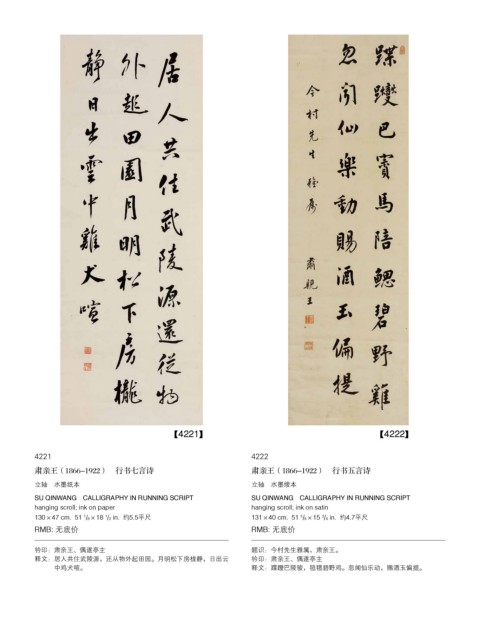 居人共住武陵源還從物
外起田園月明松下房櫳
靜日出雲中雞犬喧
蹀躞巴賨馬陪鰓碧野雞
忽聞仙樂動賜酒玉偏提
今村先生雅屬 肅親王
【4221】
【4222】
4221
肃亲王（1866–1922） 行书七言诗
立轴 水墨纸本
SU QINWANG CALLIGRAPHY IN RUNNING SCRIPT
hanging scroll; ink on paper
130 × 47 cm. 51 1/8 × 18 1/2 in. 约5.5平尺
RMB: 无底价
钤印：肃亲王、偶遂亭主
释文：居人共住武陵源，还从物外起田园。月明松下房栊静，日出云
中鸡犬喧。
4222
肃亲王（1866–1922） 行书五言诗
立轴 水墨绫本
SU QINWANG CALLIGRAPHY IN RUNNING SCRIPT
hanging scroll; ink on satin
131 × 40 cm. 51 5/8 × 15 3/4 in. 约4.7平尺
RMB: 无底价
题识：今村先生雅属，肃亲王。
钤印：肃亲王、偶遂亭主
释文：蹀躞巴陵骏，毰毸碧野鸡。忽闻仙乐动，赐酒玉偏提。